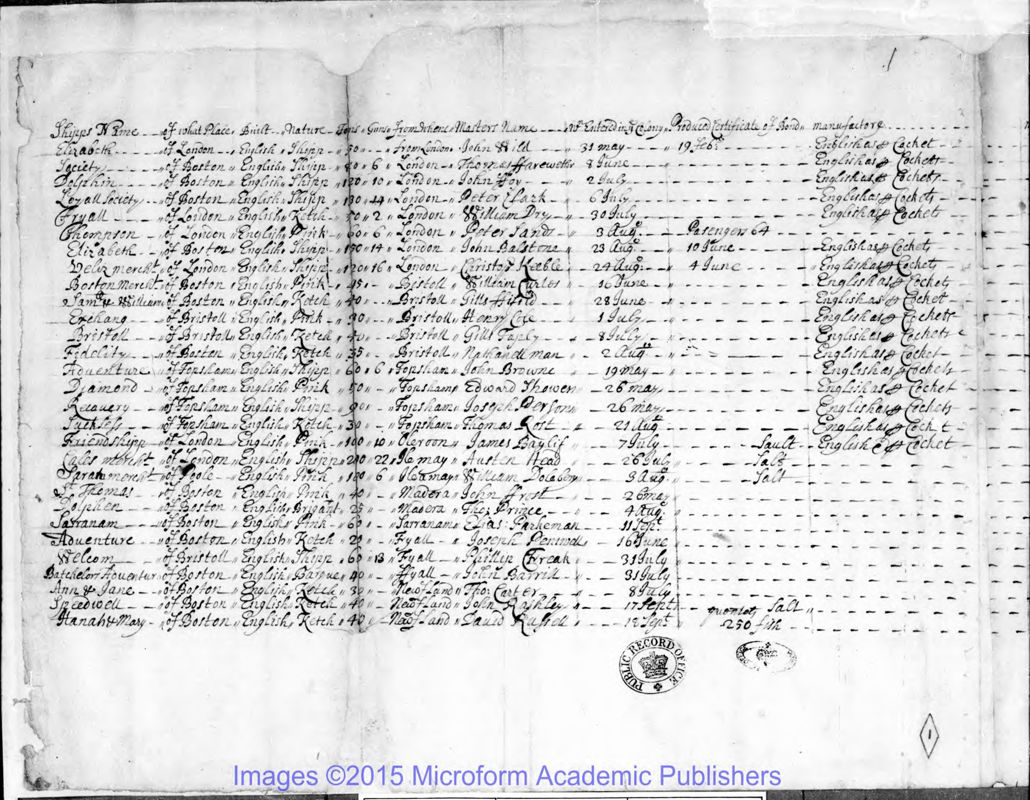 Shipps Name of what Place Built Nature Tons Guns From whence Masters Name Entered in Colony Produced Certificate of Bond manufactore
Elizabeth of London English Shipp 50 From London John Wild 31 may 19 feb English as Cocket
Society of Boston English Shipp 80 6 London Thomas 8 June English as Cockets
Dolphin of Boston English Shipp 120 10 London John Foy 2 July English as Cockets
Loyall Society of Boston English Shipp 130 14 London Peter Clark 6 July English as Cockets
Fryall of London English Ketch 50 2 London William Dry 30 July English as Cockets
Thompson of London English Pink 60 6 London Peter Sands 3 Aug Pasengers 64
Elizabeth of Boston English Shipp 190 14 London John Balstone 23 Aug 10 June English as Cockets
merchт of London English Shipp 120 16 London Christop Keeble 24 Aug 4 June English as Cockets
Boston Mercht of Boston English Pink 45 Bristoll William 16 June English as Cockets
Sam & William of Boston English Ketch 40 Bristoll Gills 28 June English as Cockett
Exchang of Bristoll English Pink 30 Bristoll Henry 1 July English as Cockets
Bristoll of Bristoll English Ketch Bristoll Gills 8 July English as Cockets
Fidelity of Boston English Ketch 35 Bristoll Nathanell man 2 Aug English as Cocket
Adventure of Topsham English Shipp 60 6 Topsham John Browne 19 may English as Cockets
Diamond of Topsham English Pink 50 Topsham Edward Thower 26 may English as Cocket
Recovery of Topsham English Shipp 90 Topsham Joseph 26 may English as Cockets
of Topsham English Ketch 30 Topsham Thomas Kost 21 Aug English as Cocket
Friendshipp of London English Pink 100 10 Oleroon James Baylif 7 July Sault English Cocket
Cales mercht of London English Shipp 240 22 Ile may Austen Head 26 July Salt
Sarah mercht of Poole English Pink 100 6 Ile may William 9 Aug Salt
St Thomas of Boston English Pink 40 Madera John Frost 26 may
Dolphen of Boston English Brigant 25 Madera Tho: Prince 4 Aug
Sarranam of Boston English Pink 60 Sarranam Elias Parkeman 11 Sept
Adventure of Boston English Ketch 20 Fyall Joseph 16 June
Welcom of Bristoll English Shipp 60 13 Fyall Phillip 31 July
Batchelors Adventur of Boston English Barque 40 Fyall John 31 July
Ann & Jane of Boston English Ketch 30 Newfland Tho: Carter 8 July
Speedwell of Boston English Ketch 40 Newfland John 17 Sept Salt
Hanah & Mary of Boston English Ketch 40 Newfland David Russell 12 Sept 250 fish
PUBLIC RECORD OFFICE
1
Images ©2015 Microform Academic Publishers